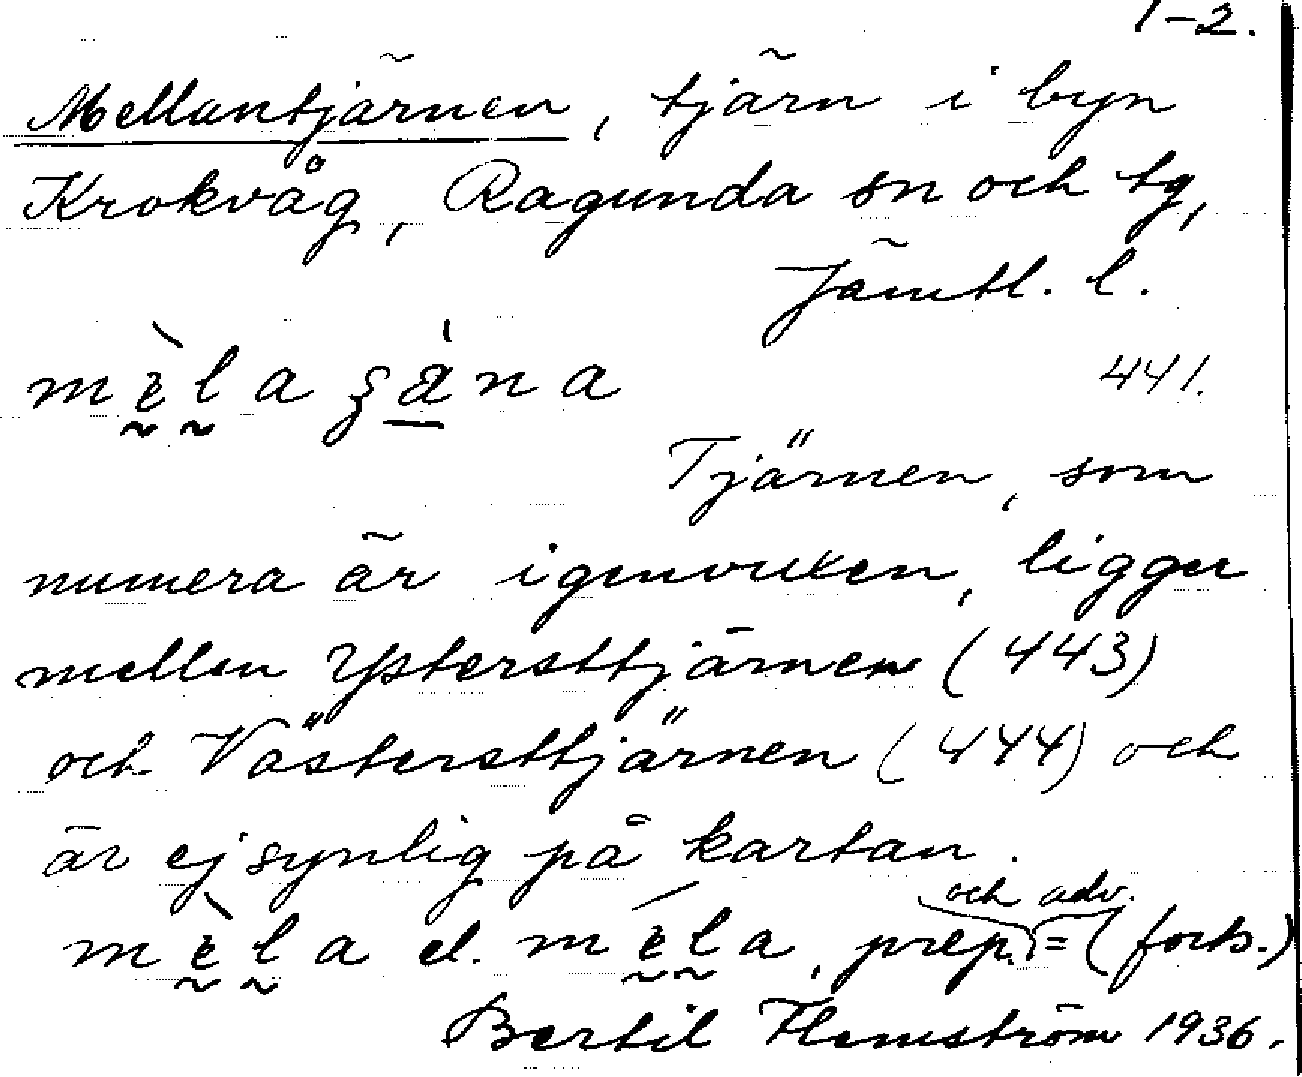 1-2.
Mellantjärnen, tjärn i byn
Krokvåg, Ragunda sn och tg,
Jämtl. l.
441.
Tjärnen, som
numera är igenvuxen, ligger
mellan Ytstersttjärnen (443)
och Västersttjärnen (444) och
är ej synlig på kartan.
och adv.
el. prep. = (forts.)
Bertil Flemström 1936.